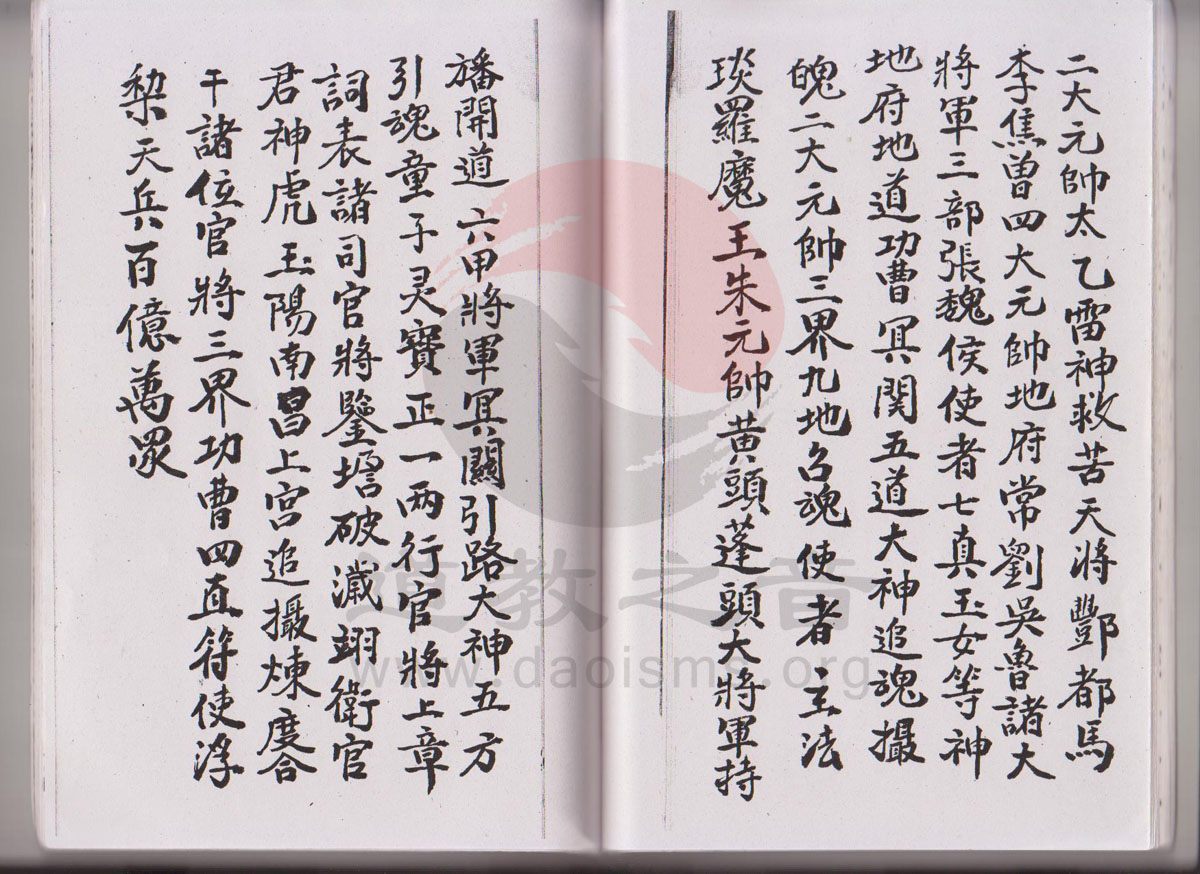 二大元帥太乙雷神救苦天將酆都馬
李焦曾四大元帥地府常劉吳魯諸大
將軍三部張魏侯使者七真玉女等神
地府地道功曹冥関五道大神追魂攝
魄二大元帥三界九地召魂使者 主法
琰羅魔王朱元帥黄頭蓬頭大將軍持
旛開道 六甲將軍冥關引路大神五方
引魂童子灵寶正一两行官將上章
詞表諸司官將鑒壇破滅翊衛官
君神虎玉陽南昌上宮追攝煉度合
干諸位官將三界功曹四直符使浮
梨天兵百億萬眾
道教之音
www.daoisms.org